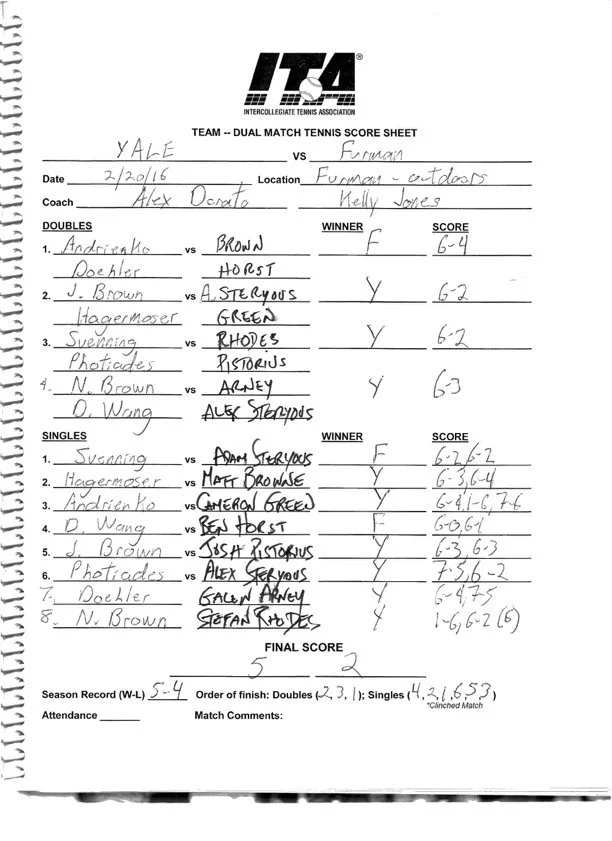 ITA®
INTERCOLLEGIATE TENNIS ASSOCIATION
TEAM -- DUAL MATCH TENNIS SCORE SHEET
YALE vs Furman
Date 2/20/16 Location Furman - outdoors
Coach Alex Dorato Kelly Jones
DOUBLES WINNER SCORE
1. Andrienko vs BROWN F 6-4
Doehler HORST
2. J. Brown vs A. STERYOUS Y 6-2
Hagermoser GREEN
3. Svenning vs RHODES Y 6-2
Photiades PISTORIUS
4. N. Brown vs ARNEY Y 6-3
D. Wang ALEX STERYOUS
SINGLES WINNER SCORE
1. Svenning vs ADAM STERYOUS F 6-2, 6-2
2. Hagermoser vs MATT BROWNE Y 6-3, 6-4
3. Andrienko vs CAMERON GREEN Y 6-4, 1-6, 7-6
4. D. Wang vs BEN HORST F 6-0, 6-1
5. J. Brown vs JOSH PISTORIUS Y 6-3, 6-3
6. Photiades vs ALEX STERYOUS Y 7-5, 6-2
7. Doehler GALEN ARNEY Y 6-4, 7-5
8. N. Brown STEFAN RHODES Y 1-6, 6-2 (6)
FINAL SCORE
5 2
Season Record (W-L) 5-4 Order of finish: Doubles (2,3,1); Singles (4,2,1,6,5,3)
*Clinched Match
Attendance Match Comments: